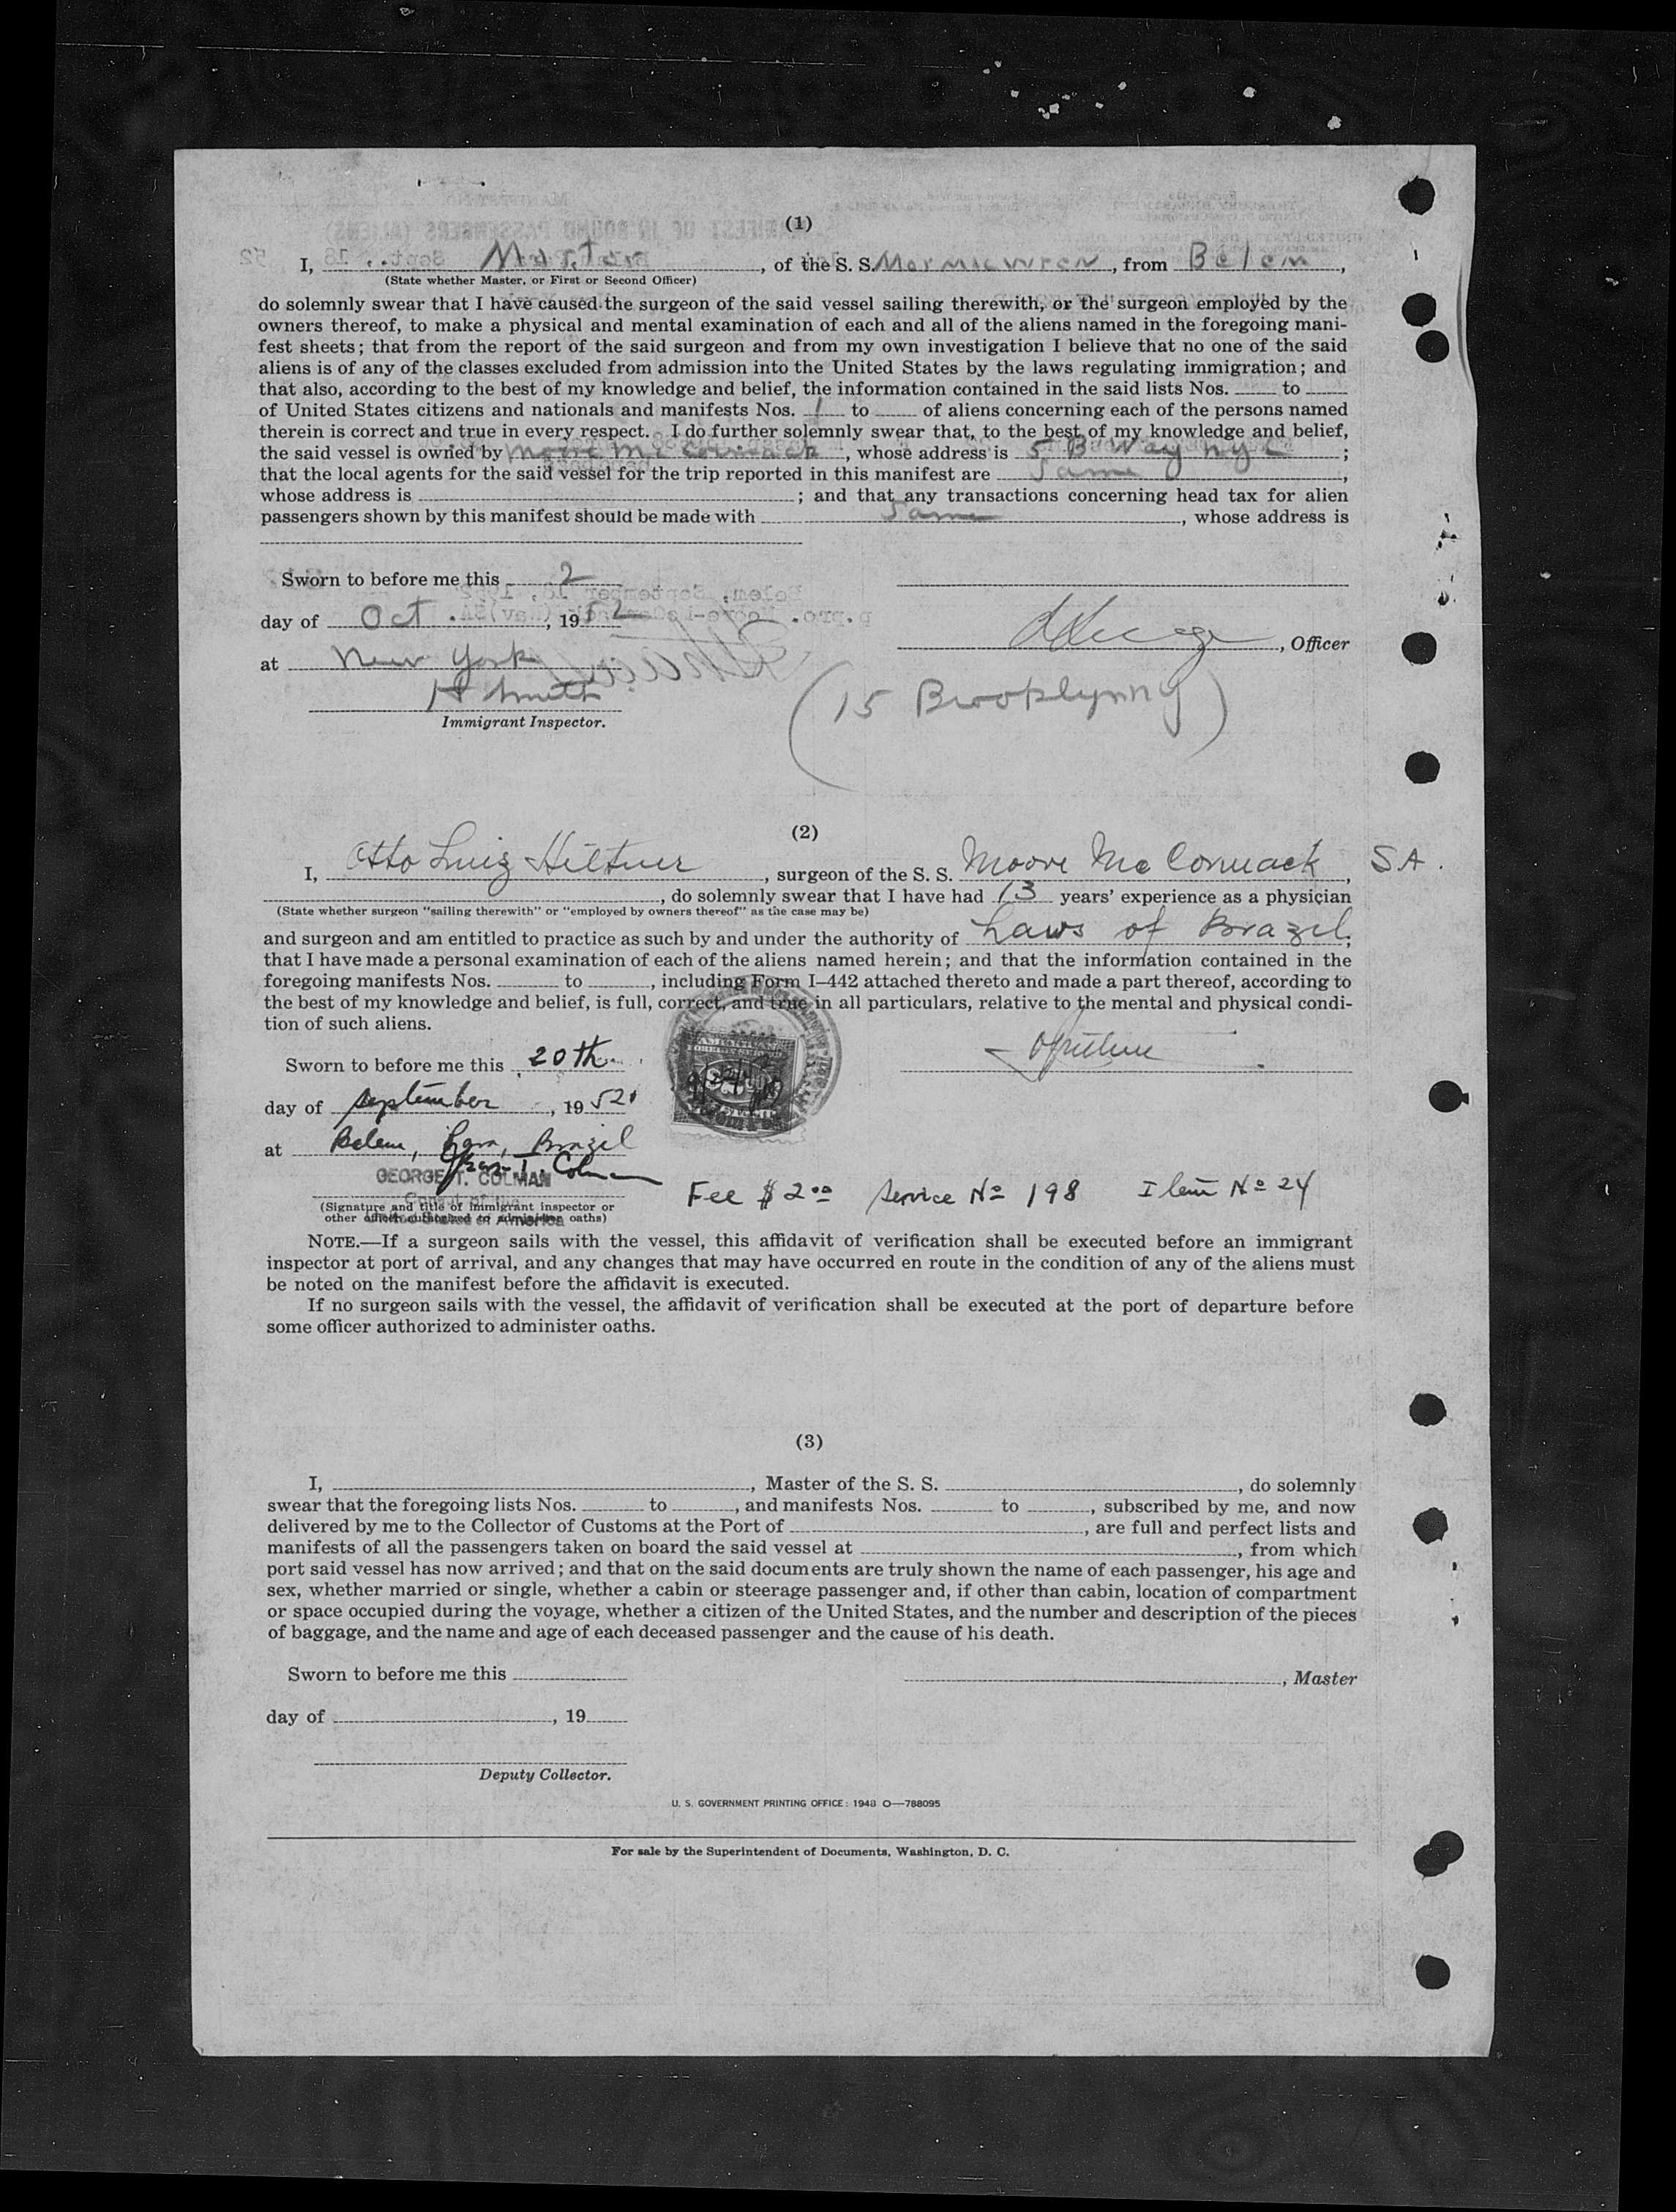 (1)
I, Master, of the S. S. Mormacwren, from Belem,
(State whether Master, or First or Second Officer)
do solemnly swear that I have caused the surgeon of the said vessel sailing therewith, or the surgeon employed by the
owners thereof, to make a physical and mental examination of each and all of the aliens named in the foregoing mani-
fest sheets; that from the report of the said surgeon and from my own investigation I believe that no one of the said
aliens is of any of the classes excluded from admission into the United States by the laws regulating immigration; and
that also, according to the best of my knowledge and belief, the information contained in the said lists Nos. to
of United States citizens and nationals and manifests Nos. 1 to of aliens concerning each of the persons named
therein is correct and true in every respect. I do further solemnly swear that, to the best of my knowledge and belief,
the said vessel is owned by Moore McCormack, whose address is 5 B Way NYC;
that the local agents for the said vessel for the trip reported in this manifest are Same,
whose address is ; and that any transactions concerning head tax for alien
passengers shown by this manifest should be made with Same, whose address is
Sworn to before me this 2
day of Oct., 1952
, Officer
at New York
H Smith
(15 Brooklyn NY)
Immigrant Inspector.
(2)
I, Otto Luiz Hiltner, surgeon of the S. S. Moore McCormack, S.A.
, do solemnly swear that I have had 13 years' experience as a physician
(State whether surgeon "sailing therewith" or "employed by owners thereof" as the case may be)
and surgeon and am entitled to practice as such by and under the authority of Laws of Brazil;
that I have made a personal examination of each of the aliens named herein; and that the information contained in the
foregoing manifests Nos. to , including Form I–442 attached thereto and made a part thereof, according to
the best of my knowledge and belief, is full, correct, and true in all particulars, relative to the mental and physical condi-
tion of such aliens.
Sworn to before me this 20th
day of September, 1952
at Belem, Para, Brazil
GEORGE T. COLMAN
Fee $2.00 Service No 198 Item No 24
(Signature and title of immigrant inspector or
other officer authorized to administer oaths)
NOTE.—If a surgeon sails with the vessel, this affidavit of verification shall be executed before an immigrant
inspector at port of arrival, and any changes that may have occurred en route in the condition of any of the aliens must
be noted on the manifest before the affidavit is executed.
If no surgeon sails with the vessel, the affidavit of verification shall be executed at the port of departure before
some officer authorized to administer oaths.
(3)
I, , Master of the S. S. , do solemnly
swear that the foregoing lists Nos. to , and manifests Nos. to , subscribed by me, and now
delivered by me to the Collector of Customs at the Port of , are full and perfect lists and
manifests of all the passengers taken on board the said vessel at , from which
port said vessel has now arrived; and that on the said documents are truly shown the name of each passenger, his age and
sex, whether married or single, whether a cabin or steerage passenger and, if other than cabin, location of compartment
or space occupied during the voyage, whether a citizen of the United States, and the number and description of the pieces
of baggage, and the name and age of each deceased passenger and the cause of his death.
Sworn to before me this
, Master
day of , 19
Deputy Collector.
U. S. GOVERNMENT PRINTING OFFICE: 1948 O—788095
For sale by the Superintendent of Documents, Washington, D. C.